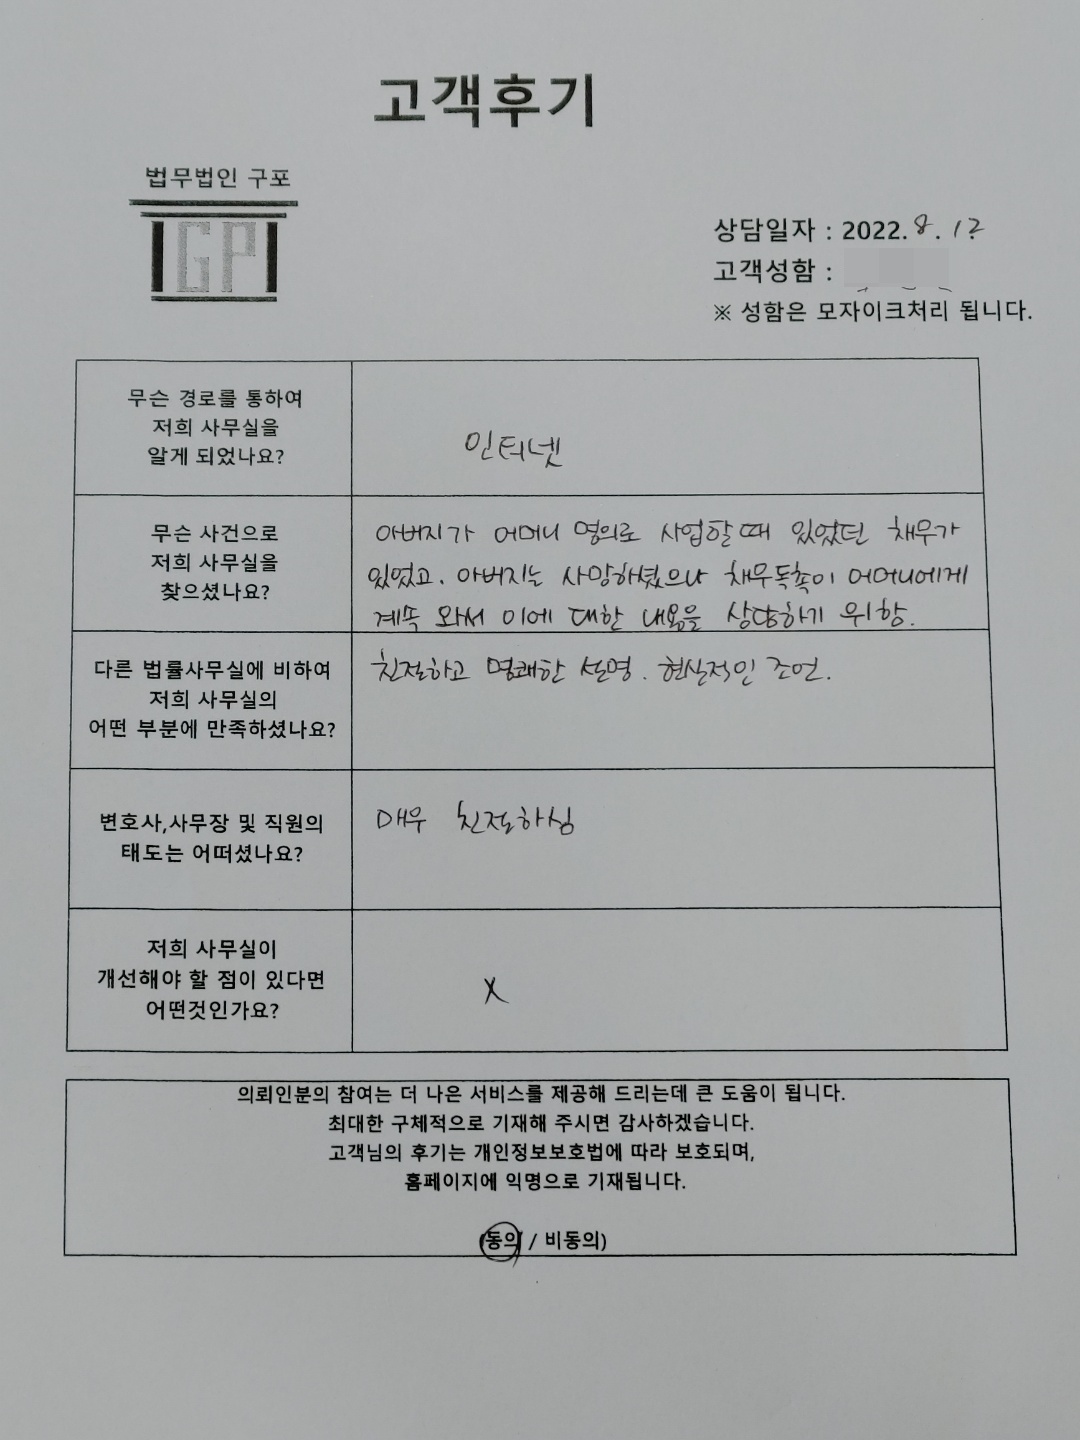 고객후기
법무법인 구포
GP
상담일자 : 2022. 8. 12
고객성함 :
※ 성함은 모자이크처리 됩니다.
무슨 경로를 통하여
저희 사무실을
알게 되었나요?
인터넷
무슨 사건으로
저희 사무실을
찾으셨나요?
아버지가 어머니 명의로 사업할때 있었던 채무가
있었고. 아버지는 사망하셨으나 채무독촉이 어머니에게
계속 와서 이에 대한 내용을 상담하기 위함.
다른 법률사무실에 비하여
저희 사무실의
어떤 부분에 만족하셨나요?
친절하고 명쾌한 설명. 현실적인 조언.
변호사,사무장 및 직원의
태도는 어떠셨나요?
매우 친절하심
저희 사무실이
개선해야 할 점이 있다면
어떤것인가요?
X
의뢰인분의 참여는 더 나은 서비스를 제공해 드리는데 큰 도움이 됩니다.
최대한 구체적으로 기재해 주시면 감사하겠습니다.
고객님의 후기는 개인정보보호법에 따라 보호되며,
홈페이지에 익명으로 기재됩니다.
(동의 / 비동의)